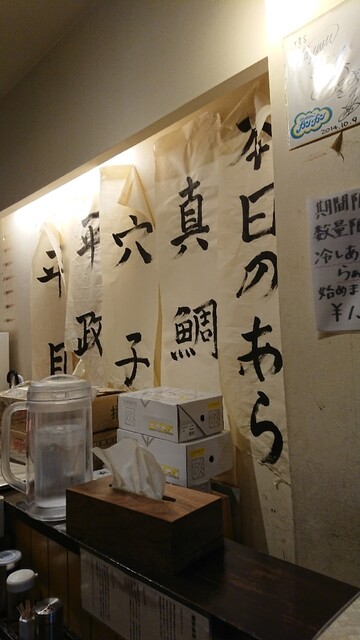 本日のあら
真鯛
穴子
平政
平目
2014.10.9
期間限
数量限
冷しあ
ら
始めま